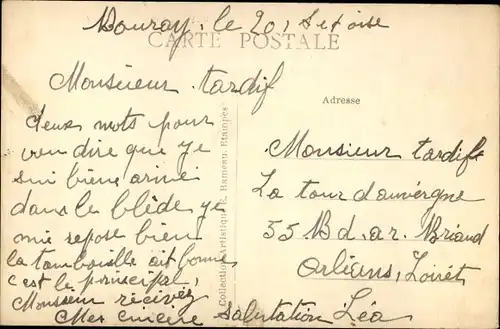 Bouray, le 20,
CARTE POSTALE
Monsieur tardif
deux mots pour
vou dire que je
sui bien arivé
dans le blède je
mie repose bien
la tambouille ait bonne
c'est le principal,
Monsieur recivez
Mes cincère Salutation Léa
Collection Artistique L. Rameau, Etampes
Adresse
Monsieur tardif
La tour d'auvergne
55 Bd. ar. Briand
orléans, Loirêt